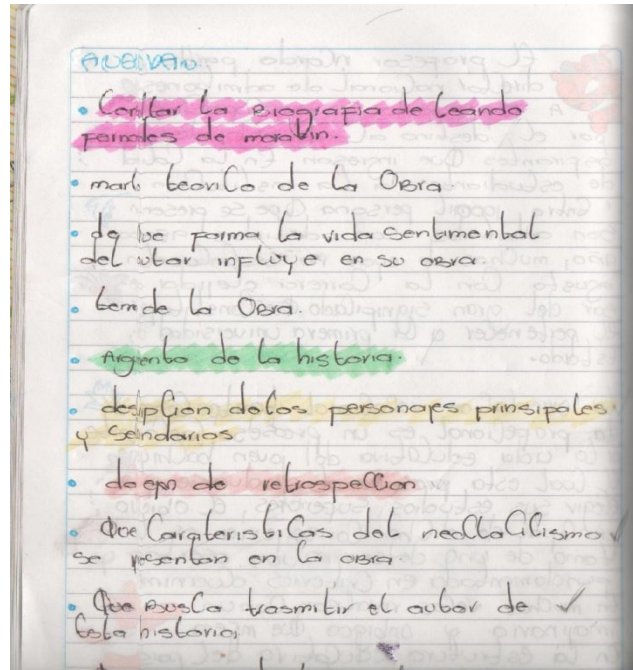 • Conltar la Biografia de leando
fernotes de moratin.
• marb teorico de la OBra
• de lue forma la vida sentimental
del utor influye en su obra.
• temde la Obra.
• Argento de la historia.
• desipcion delos personajes principales
y sendarios
• de epn de retrospeccion
• Que Carateristicas del neoclacilismo ✓
se presentan en la obra.
• Que Busca trasmitir el autor de ✓
Esta historia,